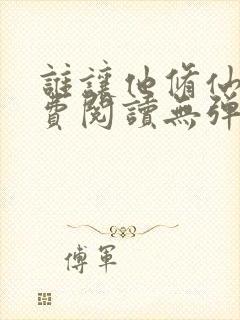 誰讓他脩仙
費閱讀無彈
傅軍